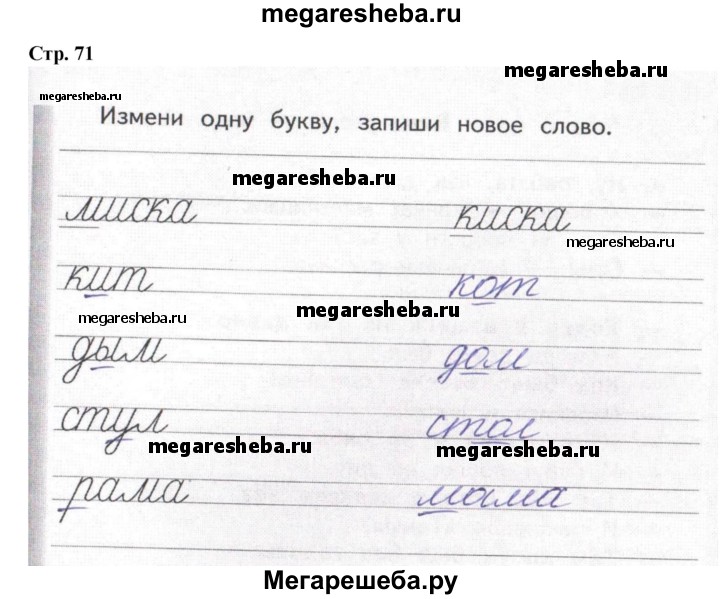 megaresheba.ru
Стр. 71
megaresheba.ru
megaresheba.ru
Измени одну букву, запиши новое слово.
megaresheba.ru
миска киска
megaresheba.ru
кит кот
megaresheba.ru
megaresheba.ru
дым дом
стул стол
megaresheba.ru megaresheba.ru
рама мама
Мегарешеба.ру